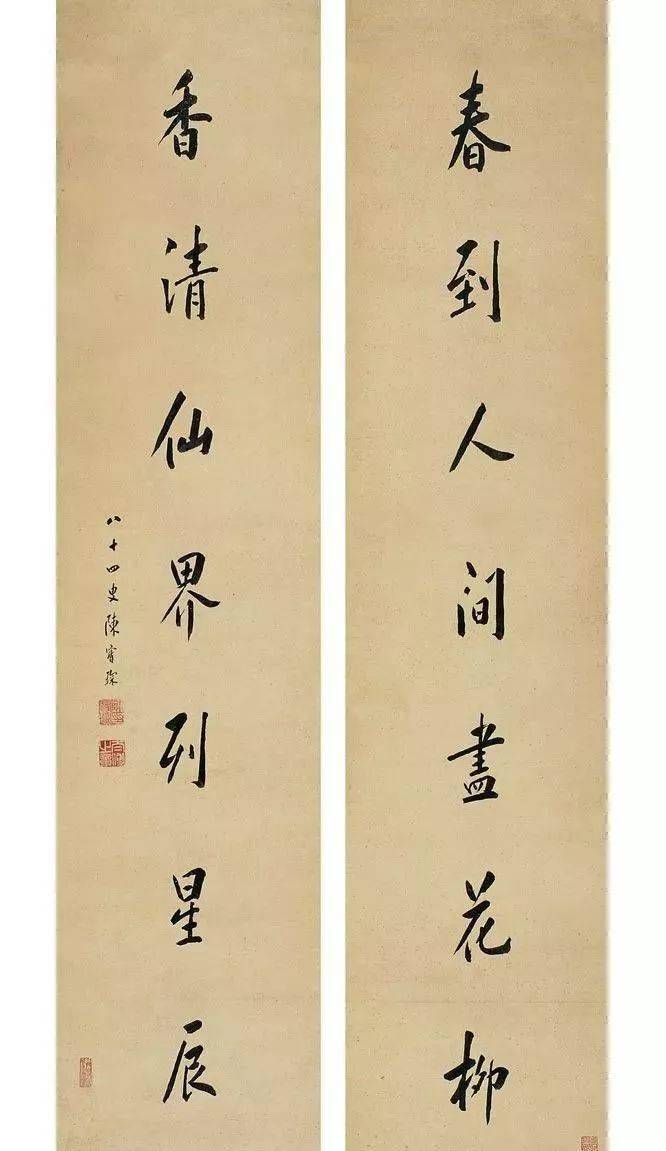 春到人間盡花柳
香清仙界列星辰
八十四叟陳寶琛